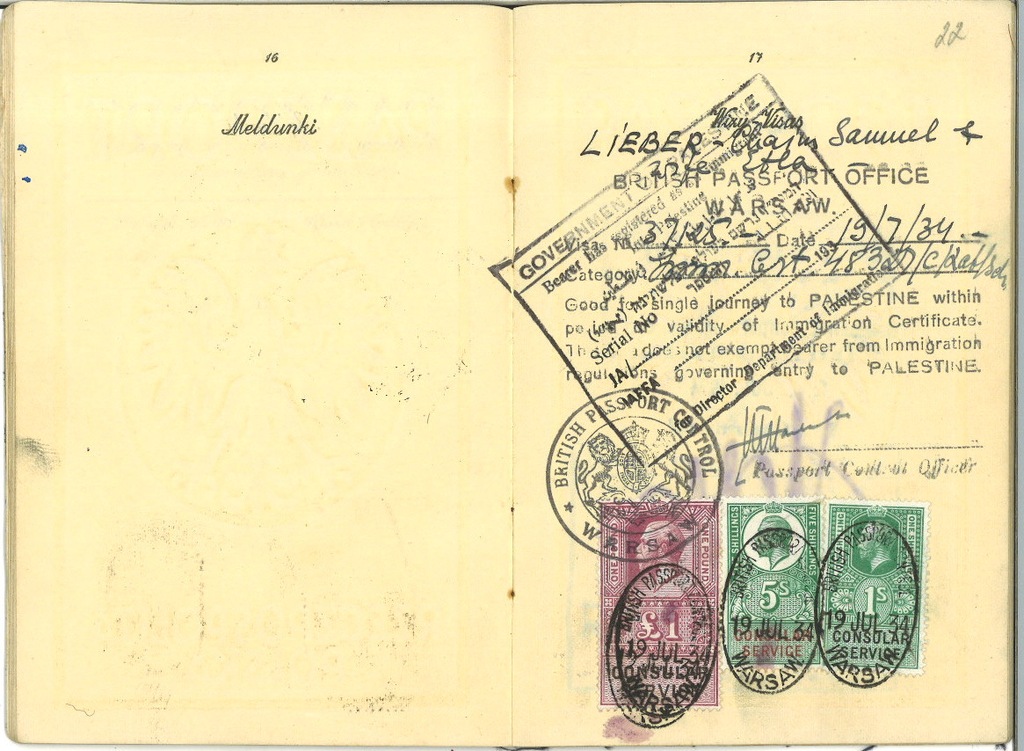 16
Meldunki
22
17
Wizy-Visas
LIEBER - Chaim Samuel &
wife
BRITISH PASSPORT OFFICE
WARSAW
Visa No 37125 - Date 19/7/34 -
Category Imm. Cert.
Good for single journey to PALESTINE within
period validity of Immigration Certificate.
This visa does not exempt bearer from Immigration
regulations governing entry to PALESTINE.
GOVERNMENT OF PALESTINE
Bearer has registered as an immigrant
into Palestine
Serial No
193
JA
JAFFA
for Director Department of Immigration
Passport Control Officer
BRITISH PASSPORT CONTROL
★ WARSAW ★
ONE POUND
£1
CONSULAR
SERVICE
FIVE SHILLINGS
5S
CONSULAR
SERVICE
ONE SHILLING
1S
CONSULAR
SERVICE
BRITISH PASSPORT OFFICE
19 JUL 34
WARSAW
BRITISH PASSPORT OFFICE
19 JUL 34
WARSAW
BRITISH PASSPORT OFFICE
19 JUL 34
WARSAW